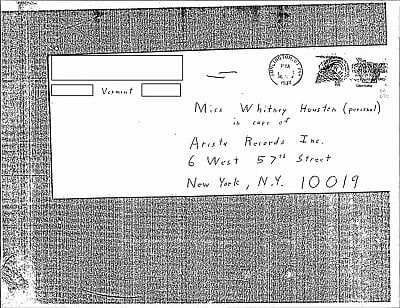 BURLINGTON, VT
PM
Vermont
Miss Whitney Houston (personal)
in care of
Arista Records Inc.
6 West 57th Street
New York, N.Y. 10019